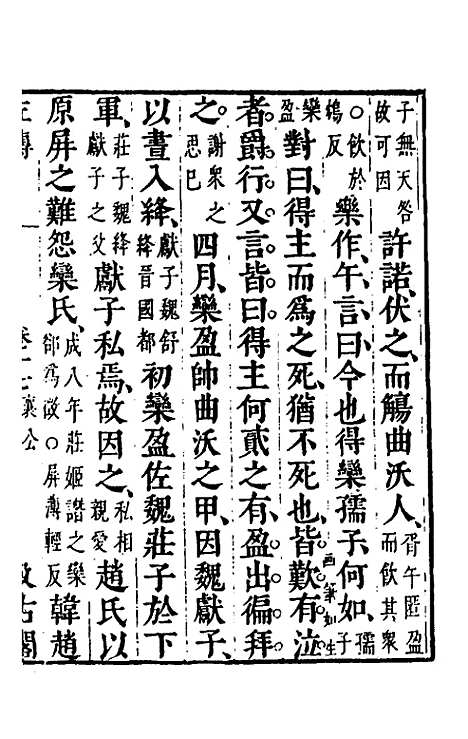 子無天咎故可因許諾、伏之、而觴曲沃人、胥午匿盈而飲其衆
○飲於鴆反樂作、午言曰、今也得欒孺子何如、孺子
欒盈對曰、得主而爲之死、猶不死也、皆歎、有泣
者。爵行、又言、皆曰、得主何貳之有、盈出徧拜
之。謝衆之思已四月、欒盈帥曲沃之甲、因魏獻子、
以晝入絳、獻子魏舒絳晉國都初欒盈佐魏莊子於下
軍、莊子魏絳獻子之父獻子私焉、故因之、私相親愛趙氏以
原屏之難怨欒氏、成八年莊姬譖之欒郤爲徵○屏薄輕反韓趙
左傳
襄公
汲古閣